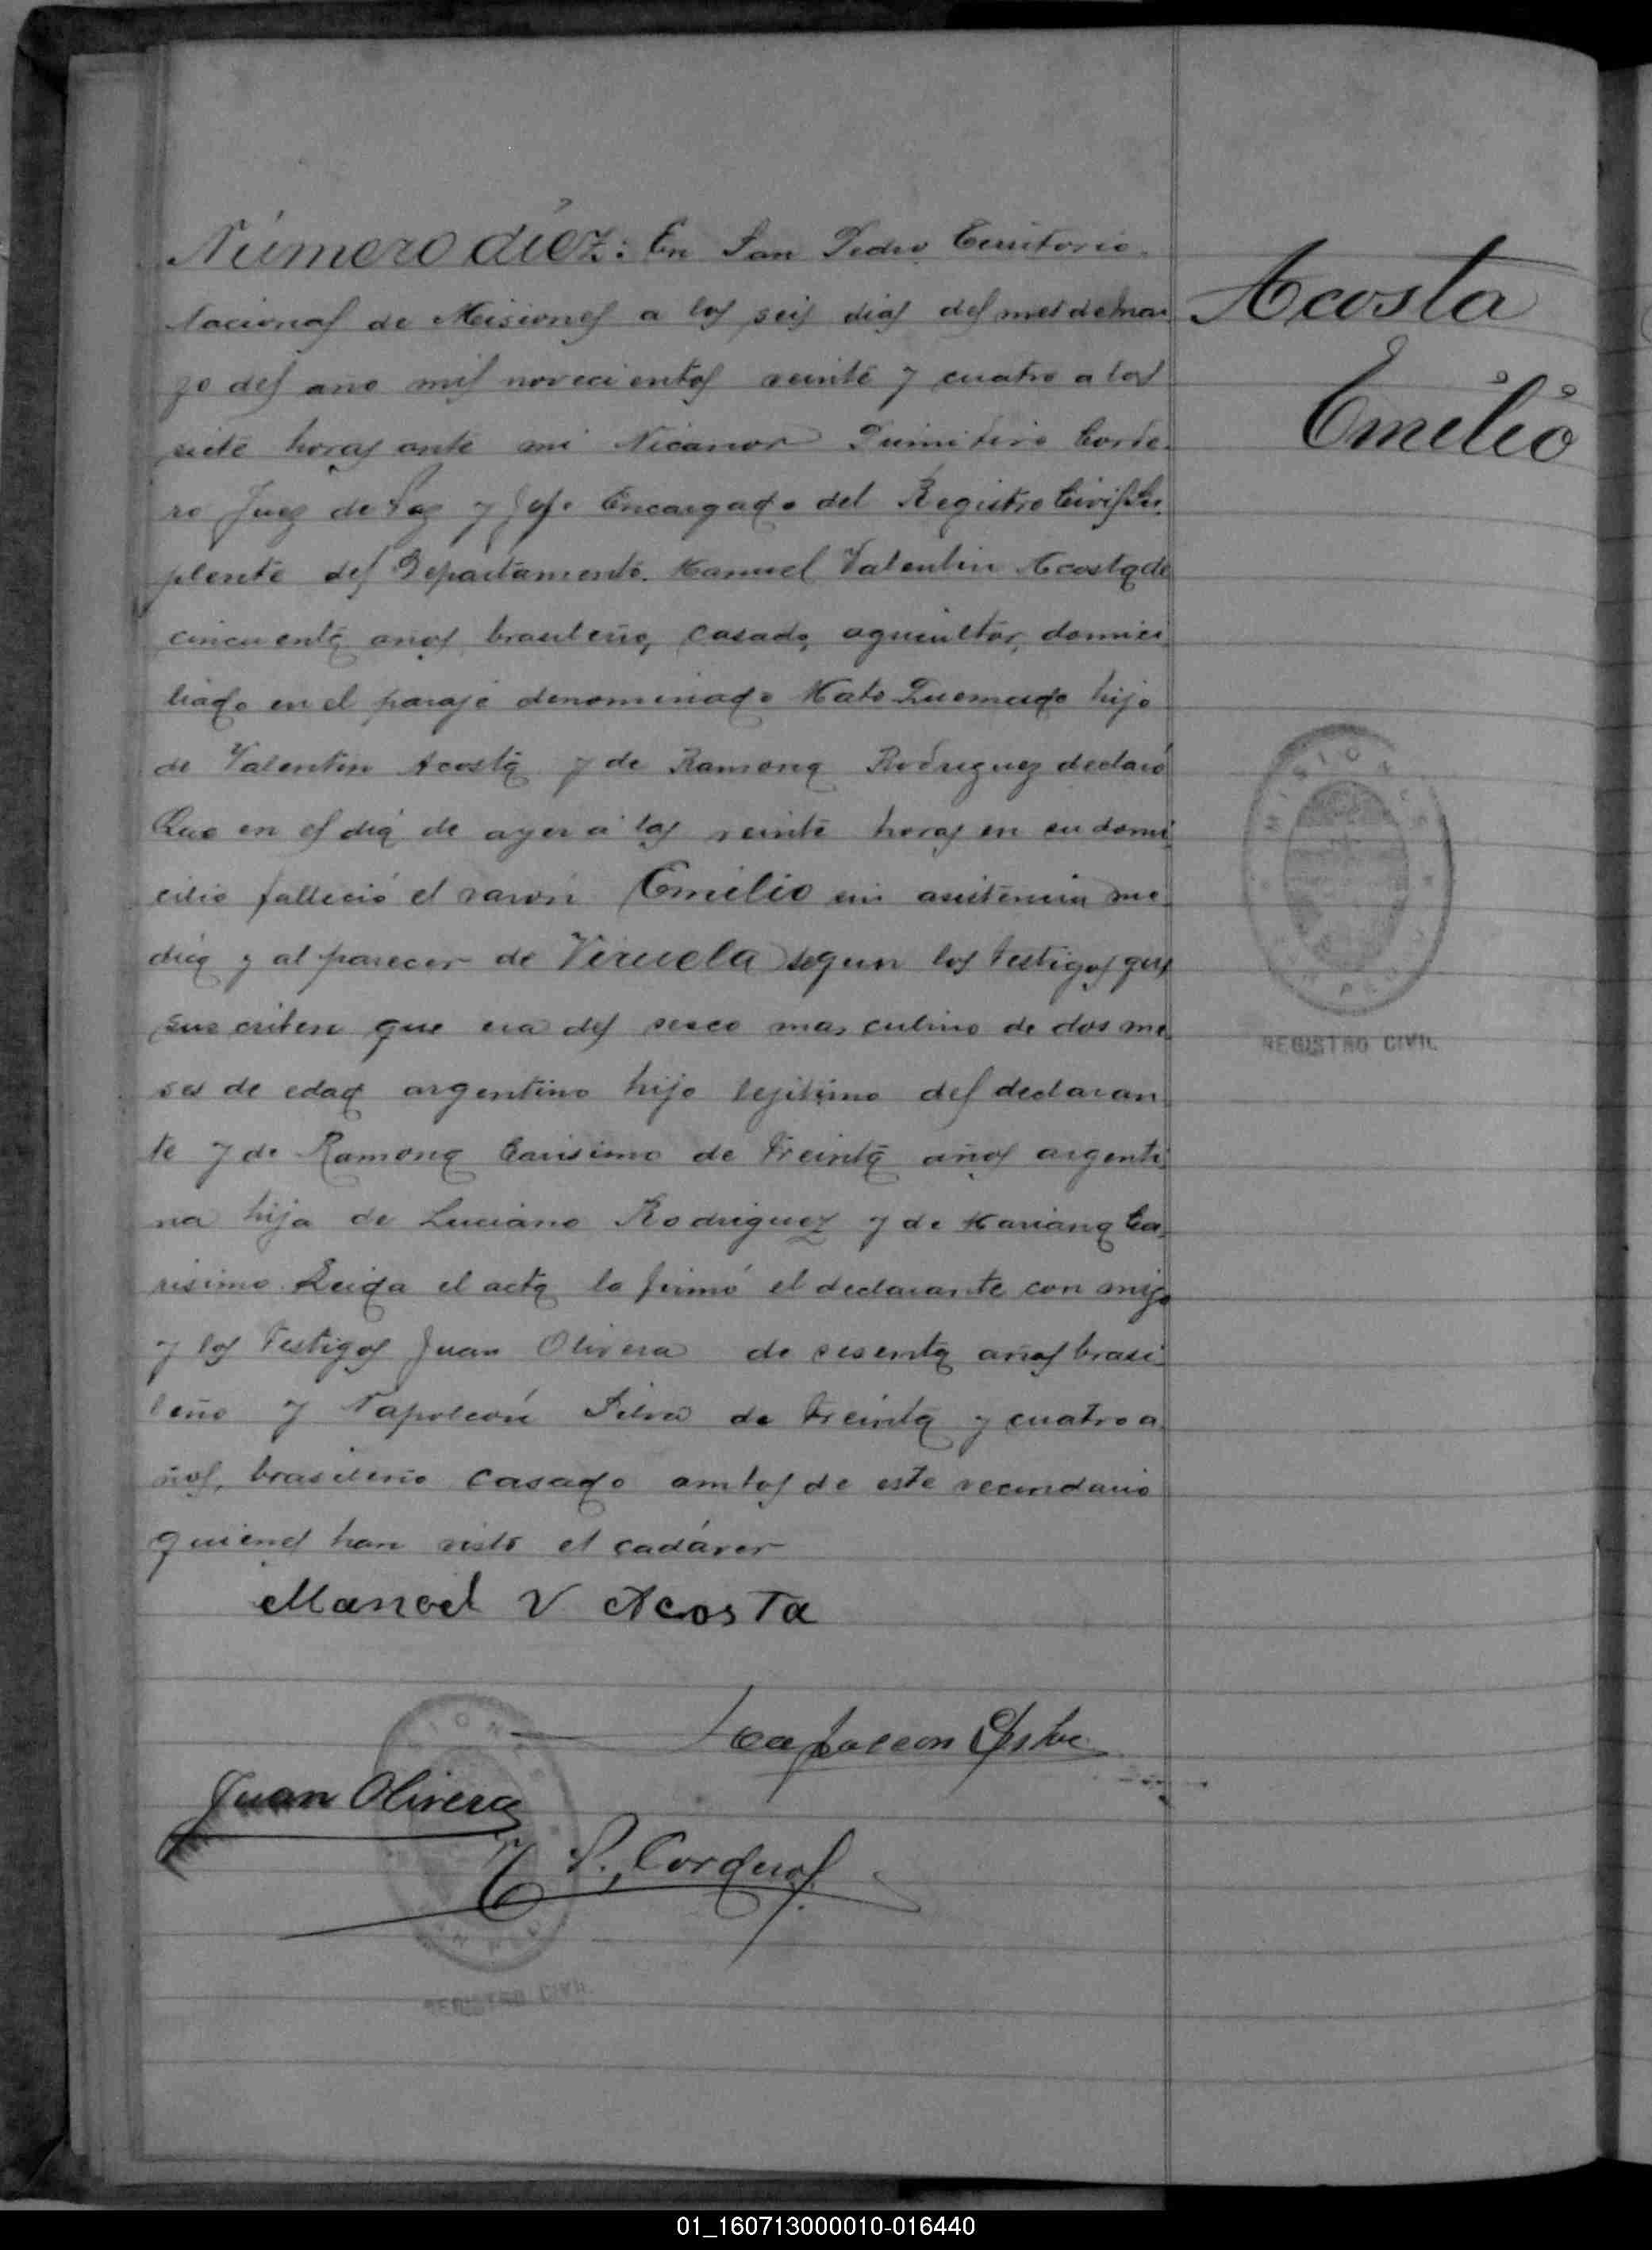 Número diez: En San Pedro Territorio
Nacional de Misiones a los seis dias del mes de mar-
zo del año mil novecientos veinte y cuatro a las
siete horas ante mi Nicanor Primitivo Corde-
ro Juez de Paz y Jefe Encargado del Registro Civil Su-
plente del Departamento. Manuel Valentin Acosta de
cincuenta años brasileño, casado, agricultor, domici-
liado en el paraje denominado Mato Quemado hijo
de Valentin Acosta y de Ramona Rodriguez declaró
Que en el dia de ayer a las veinte horas en su domi-
cilio falleció el varón Emilio sin asistencia me-
dica y al parecer de Viruela segun los testigos que
suscriben que era del secso masculino de dos me-
ses de edad argentino hijo lejitimo del declaran
te y de Ramona Carisimo de treinta años argenti-
na hija de Luciano Rodriguez y de Mariana Ca-
risimo. Leida el acta la firmó el declarante con migo
y los testigos Juan Olivera de sesenta años brasi-
leño y Napoleón Silva de treinta y cuatro a-
ños, brasileño casado ambos de este vecindario
quienes han visto el cadáver
Manoel V Acosta
Napoleon Silva
Juan Olivera
P. Cordero
Acosta
Emilio
MISIONES
SAN PEDRO
REGISTRO CIVIL
MISIONES
SAN PEDRO
REGISTRO CIVIL
01_160713000010-016440